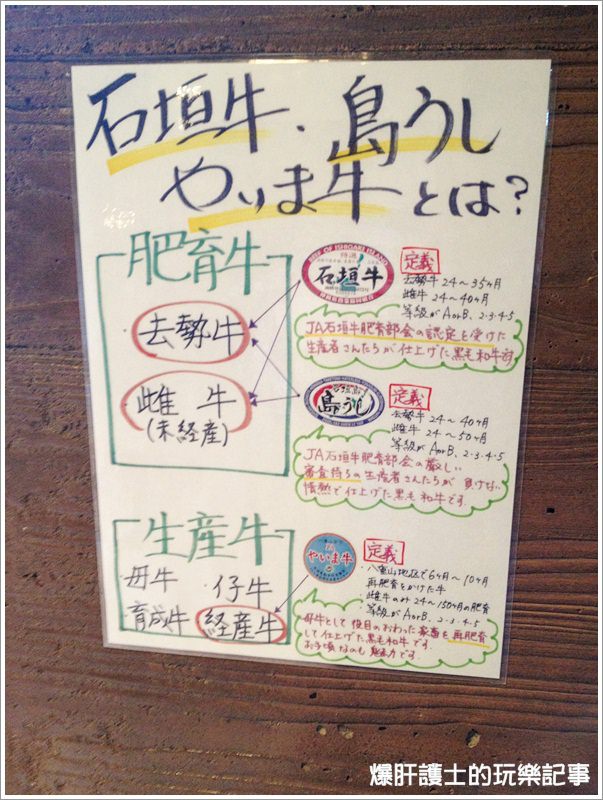 石垣牛、島うし
やいま牛とは?
肥育牛
去勢牛
雌牛
(未経産)
BEEF OF ISHIGAKI ISLAND
特選
石垣牛
定義
去勢牛 24〜35ヶ月
雌牛 24〜40ヶ月
等級がAorB、2・3・4・5
JA石垣牛肥育部会の認定を受けた
生産者さんたちが仕上げた黒毛和牛
島うし
定義
去勢牛 24〜40ヶ月
雌牛 24〜50ヶ月
等級がAorB、2・3・4・5
JA石垣牛肥育部会の厳しい
審査待ちの生産者さんたちが 負けない
情熱で仕上げた黒毛和牛です。
生産牛
母牛 仔牛
育成牛 経産牛
やいま牛
定義
・八重山地区で6ヶ月〜10ヶ月
再肥育をかけた牛
・雌牛のみ 24〜150ヶ月の肥育
・等級がAorB、2・3・4・5
母牛として役目のおわった家畜を再肥育
して仕上げた黒毛和牛です。
お手頃なのも魅力です。
爆肝護士的玩樂記事